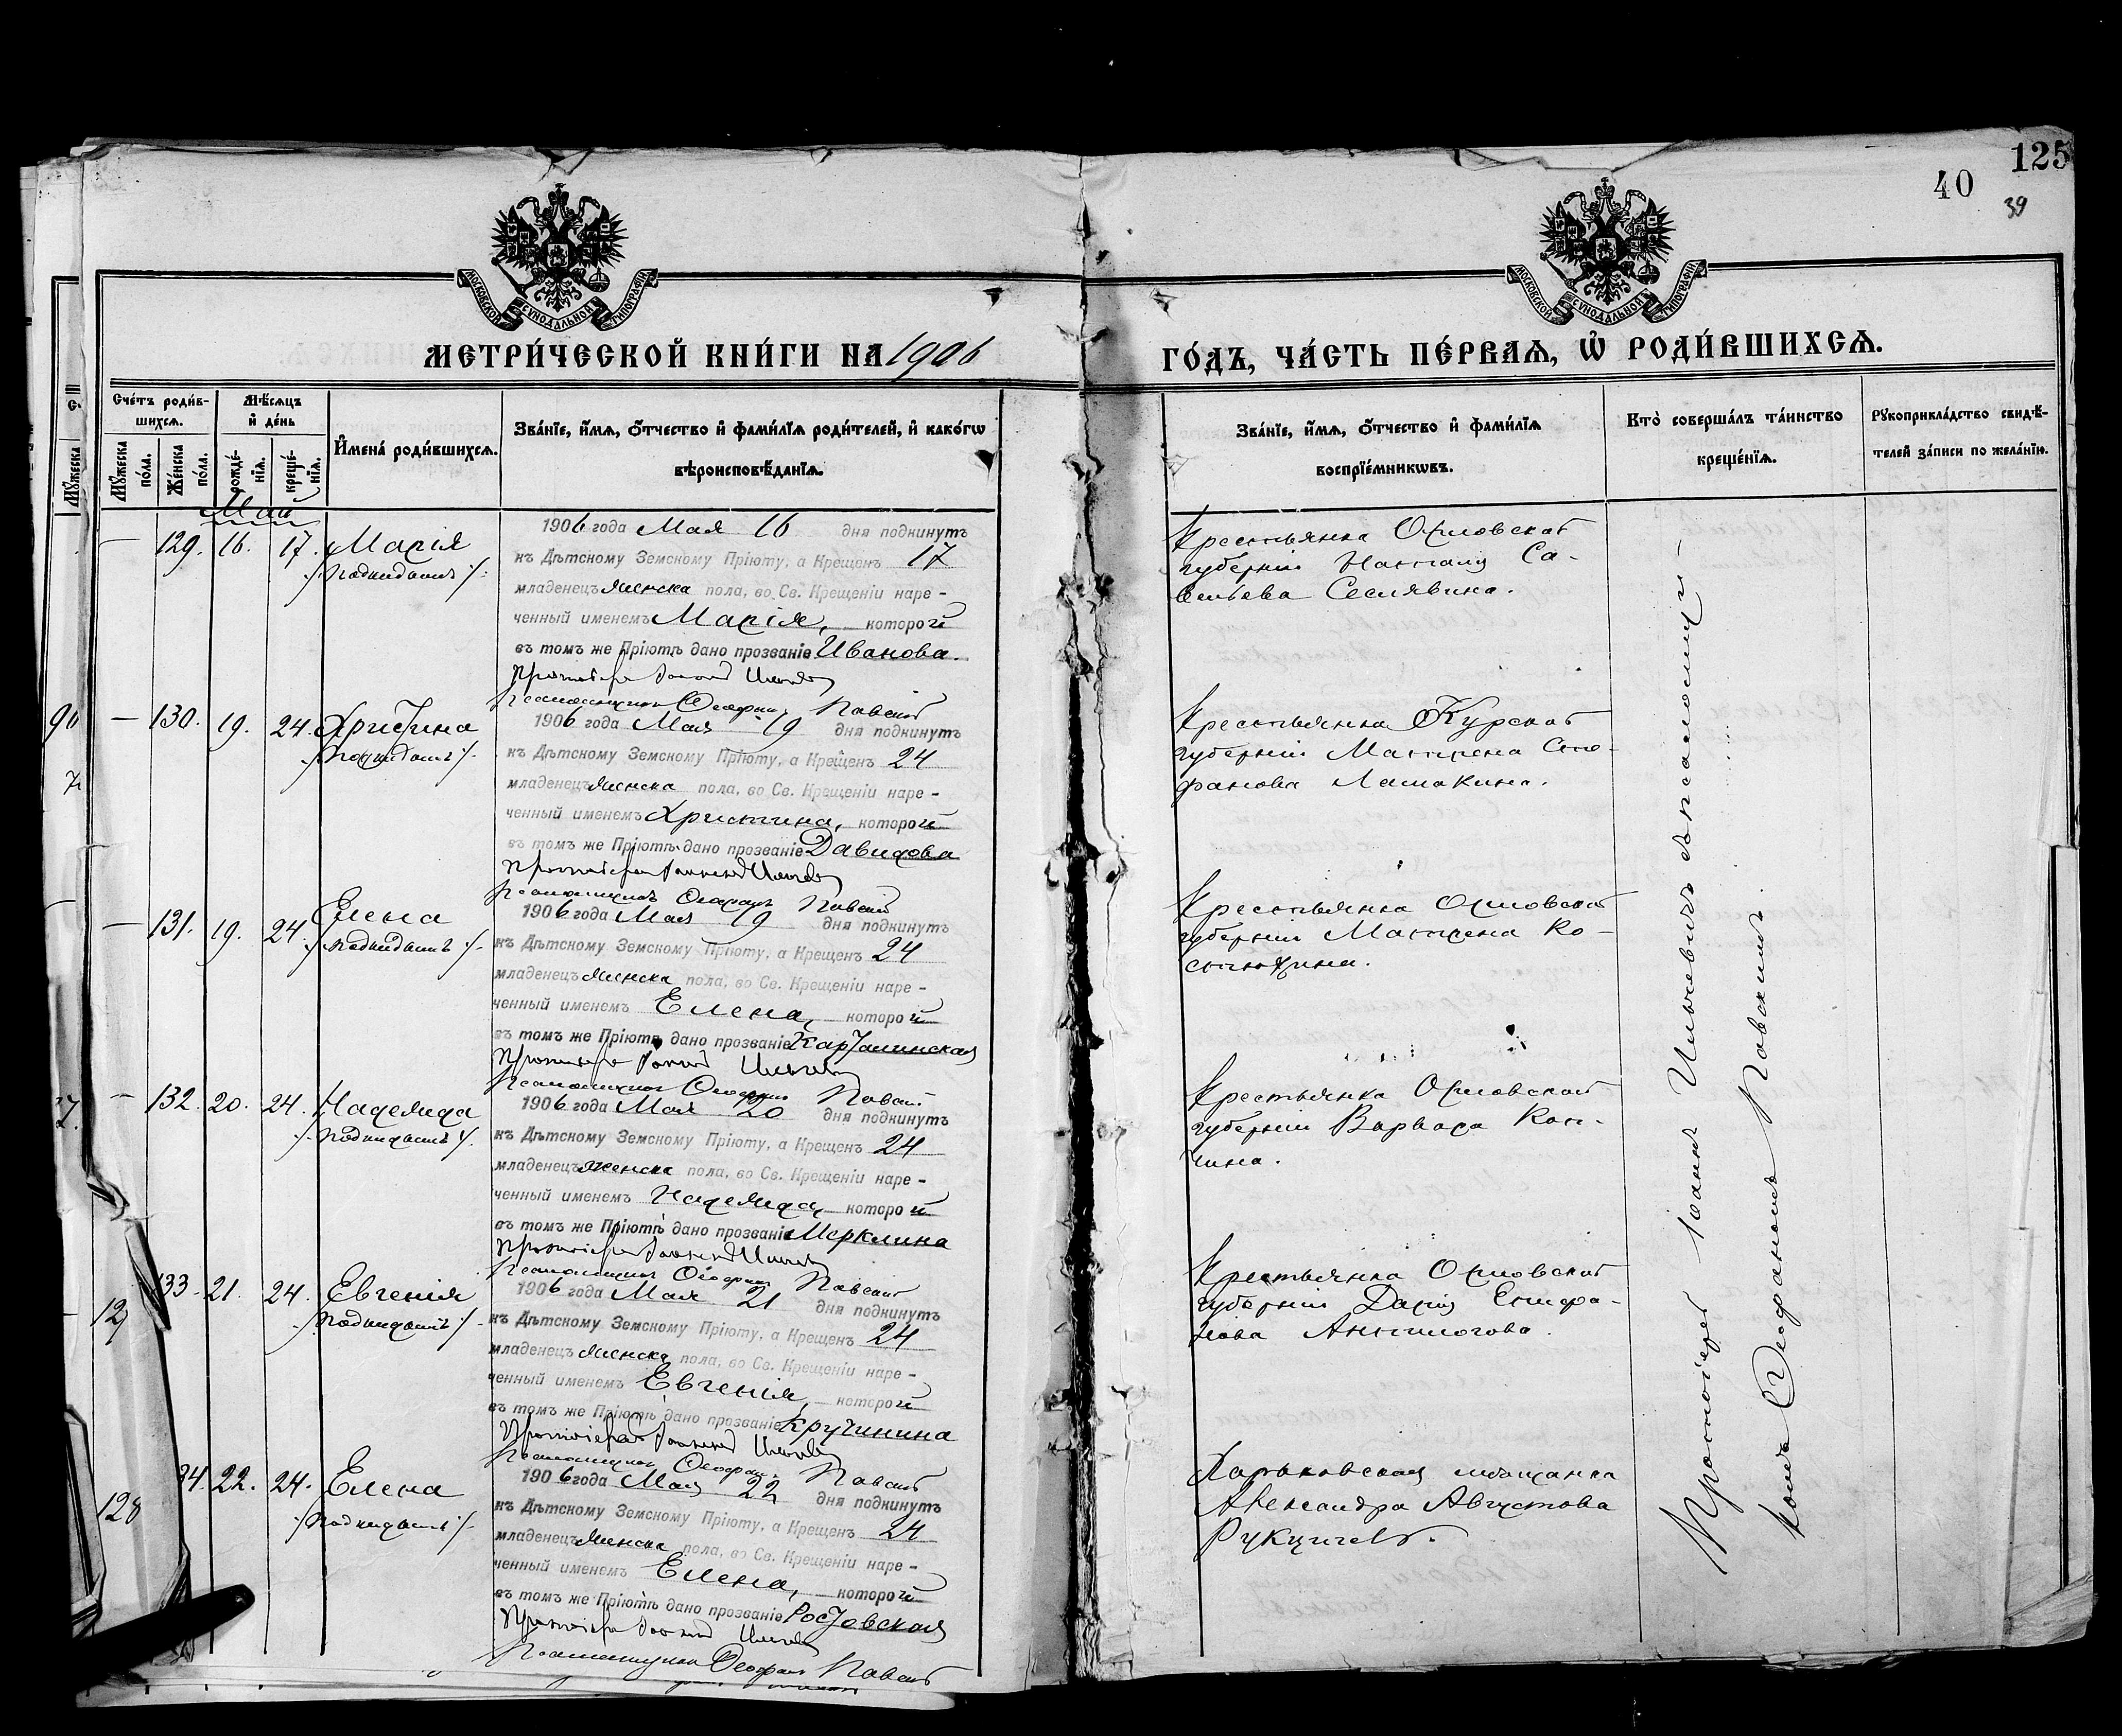 125
40
39
МОСКОВСКОЙ СѴНОДАЛЬНОЙ ТИПОГРАФІИ
МОСКОВСКОЙ СѴНОДАЛЬНОЙ ТИПОГРАФІИ
МЕТРИ́ЧЕСКОЙ КНИ́ГИ НА 1906
ГО́ДЪ, ЧА́СТЬ ПЕ́РВАѦ, Ѽ РОДИ́ВШИХСѦ.
Сче́тъ роди́в-
шихсѧ.
Мꙋ́жеска по́ла.
Же́нска по́ла.
Мѣ́сѧцъ
и҆ де́нь
рожде́-
нїѧ.
креще́-
нїѧ.
И҆мена̀ роди́вшихсѧ.
Зва́нїе, и҆́мѧ, ѻ҆́тчество и҆ фами́лїѧ роди́телей, и҆ како́гѡ
вѣроисповѣ́данїѧ.
Зва́нїе, и҆́мѧ, ѻ҆́тчество и҆ фами́лїѧ
воспрїе́мникѡвъ.
Кто̀ соверша́лъ та́инство
креще́нїѧ.
Рꙋкоприкла́дство свидѣ́-
телей за́писи по жела́нїю.
Май
— 129. 16. 17. Марія
/Подкидышъ/
1906 года Мая 16 дня подкинутъ
къ Дѣтскому Земскому Пріюту, а Крещенъ 17
младенецъ женска пола, во Св. Крещеніи наре-
ченный именемъ Марія, которой
въ томъ же Пріютѣ дано прозваніе Иванова.
Протоіерей Іоаннъ
Псаломщикъ Ѳеофанъ Павскій
Крестьянка Орловской
губерніи Наталія Са-
вельева Сеслявина.
— 130. 19. 24. Христина
/Подкидышъ/
1906 года Мая 19 дня подкинутъ
къ Дѣтскому Земскому Пріюту, а Крещенъ 24
младенецъ женска пола, во Св. Крещеніи наре-
ченный именемъ Христина, которой
въ томъ же Пріютѣ дано прозваніе Давидова
Протоіерей Іоаннъ
Псаломщикъ Ѳеофанъ Павскій
Крестьянка Курской
губерніи Матрена Сте-
фанова Лашакина.
— 131. 19. 24 Елена
/Подкидышъ/
1906 года Мая 19 дня подкинутъ
къ Дѣтскому Земскому Пріюту, а Крещенъ 24
младенецъ женска пола, во Св. Крещеніи наре-
ченный именемъ Елена, которой
въ томъ же Пріютѣ дано прозваніе Карталинская
Протоіерей Іоаннъ
Псаломщикъ Ѳеофанъ Павскій
Крестьянка Орловской
губерніи Матрена Ко-
— 132. 20. 24. Надежда
/Подкидышъ/
1906 года Мая 20 дня подкинутъ
къ Дѣтскому Земскому Пріюту, а Крещенъ 24
младенецъ женска пола, во Св. Крещеніи наре-
ченный именемъ Надежда, которой
въ томъ же Пріютѣ дано прозваніе Меркулина
Протоіерей Іоаннъ
Псаломщикъ Ѳеофанъ Павскій
Крестьянка Орловской
губерніи Варвара
133. 21. 24. Евгенія
/Подкидышъ/
1906 года Мая 21 дня подкинутъ
къ Дѣтскому Земскому Пріюту, а Крещенъ 24
младенецъ женска пола, во Св. Крещеніи наре-
ченный именемъ Евгенія, которой
въ томъ же Пріютѣ дано прозваніе Кручинина
Протоіерей Іоаннъ
Псаломщикъ Ѳеофанъ Павскій
Крестьянка Орловской
губерніи Дарія Епифа-
нова Анпилогова.
34. 22. 24. Елена
/Подкидышъ/
1906 года Мая 22 дня подкинутъ
къ Дѣтскому Земскому Пріюту, а Крещенъ 24
младенецъ женска пола, во Св. Крещеніи наре-
ченный именемъ Елена, которой
въ томъ же Пріютѣ дано прозваніе Ростовская
Протоіерей Іоаннъ
Псаломщикъ Ѳеофанъ Павскій
Харьковская мѣщанка
Александра Августова
Протоіерей Іоаннъ съ псаломщи-
комъ Ѳеофаномъ Павскимъ.